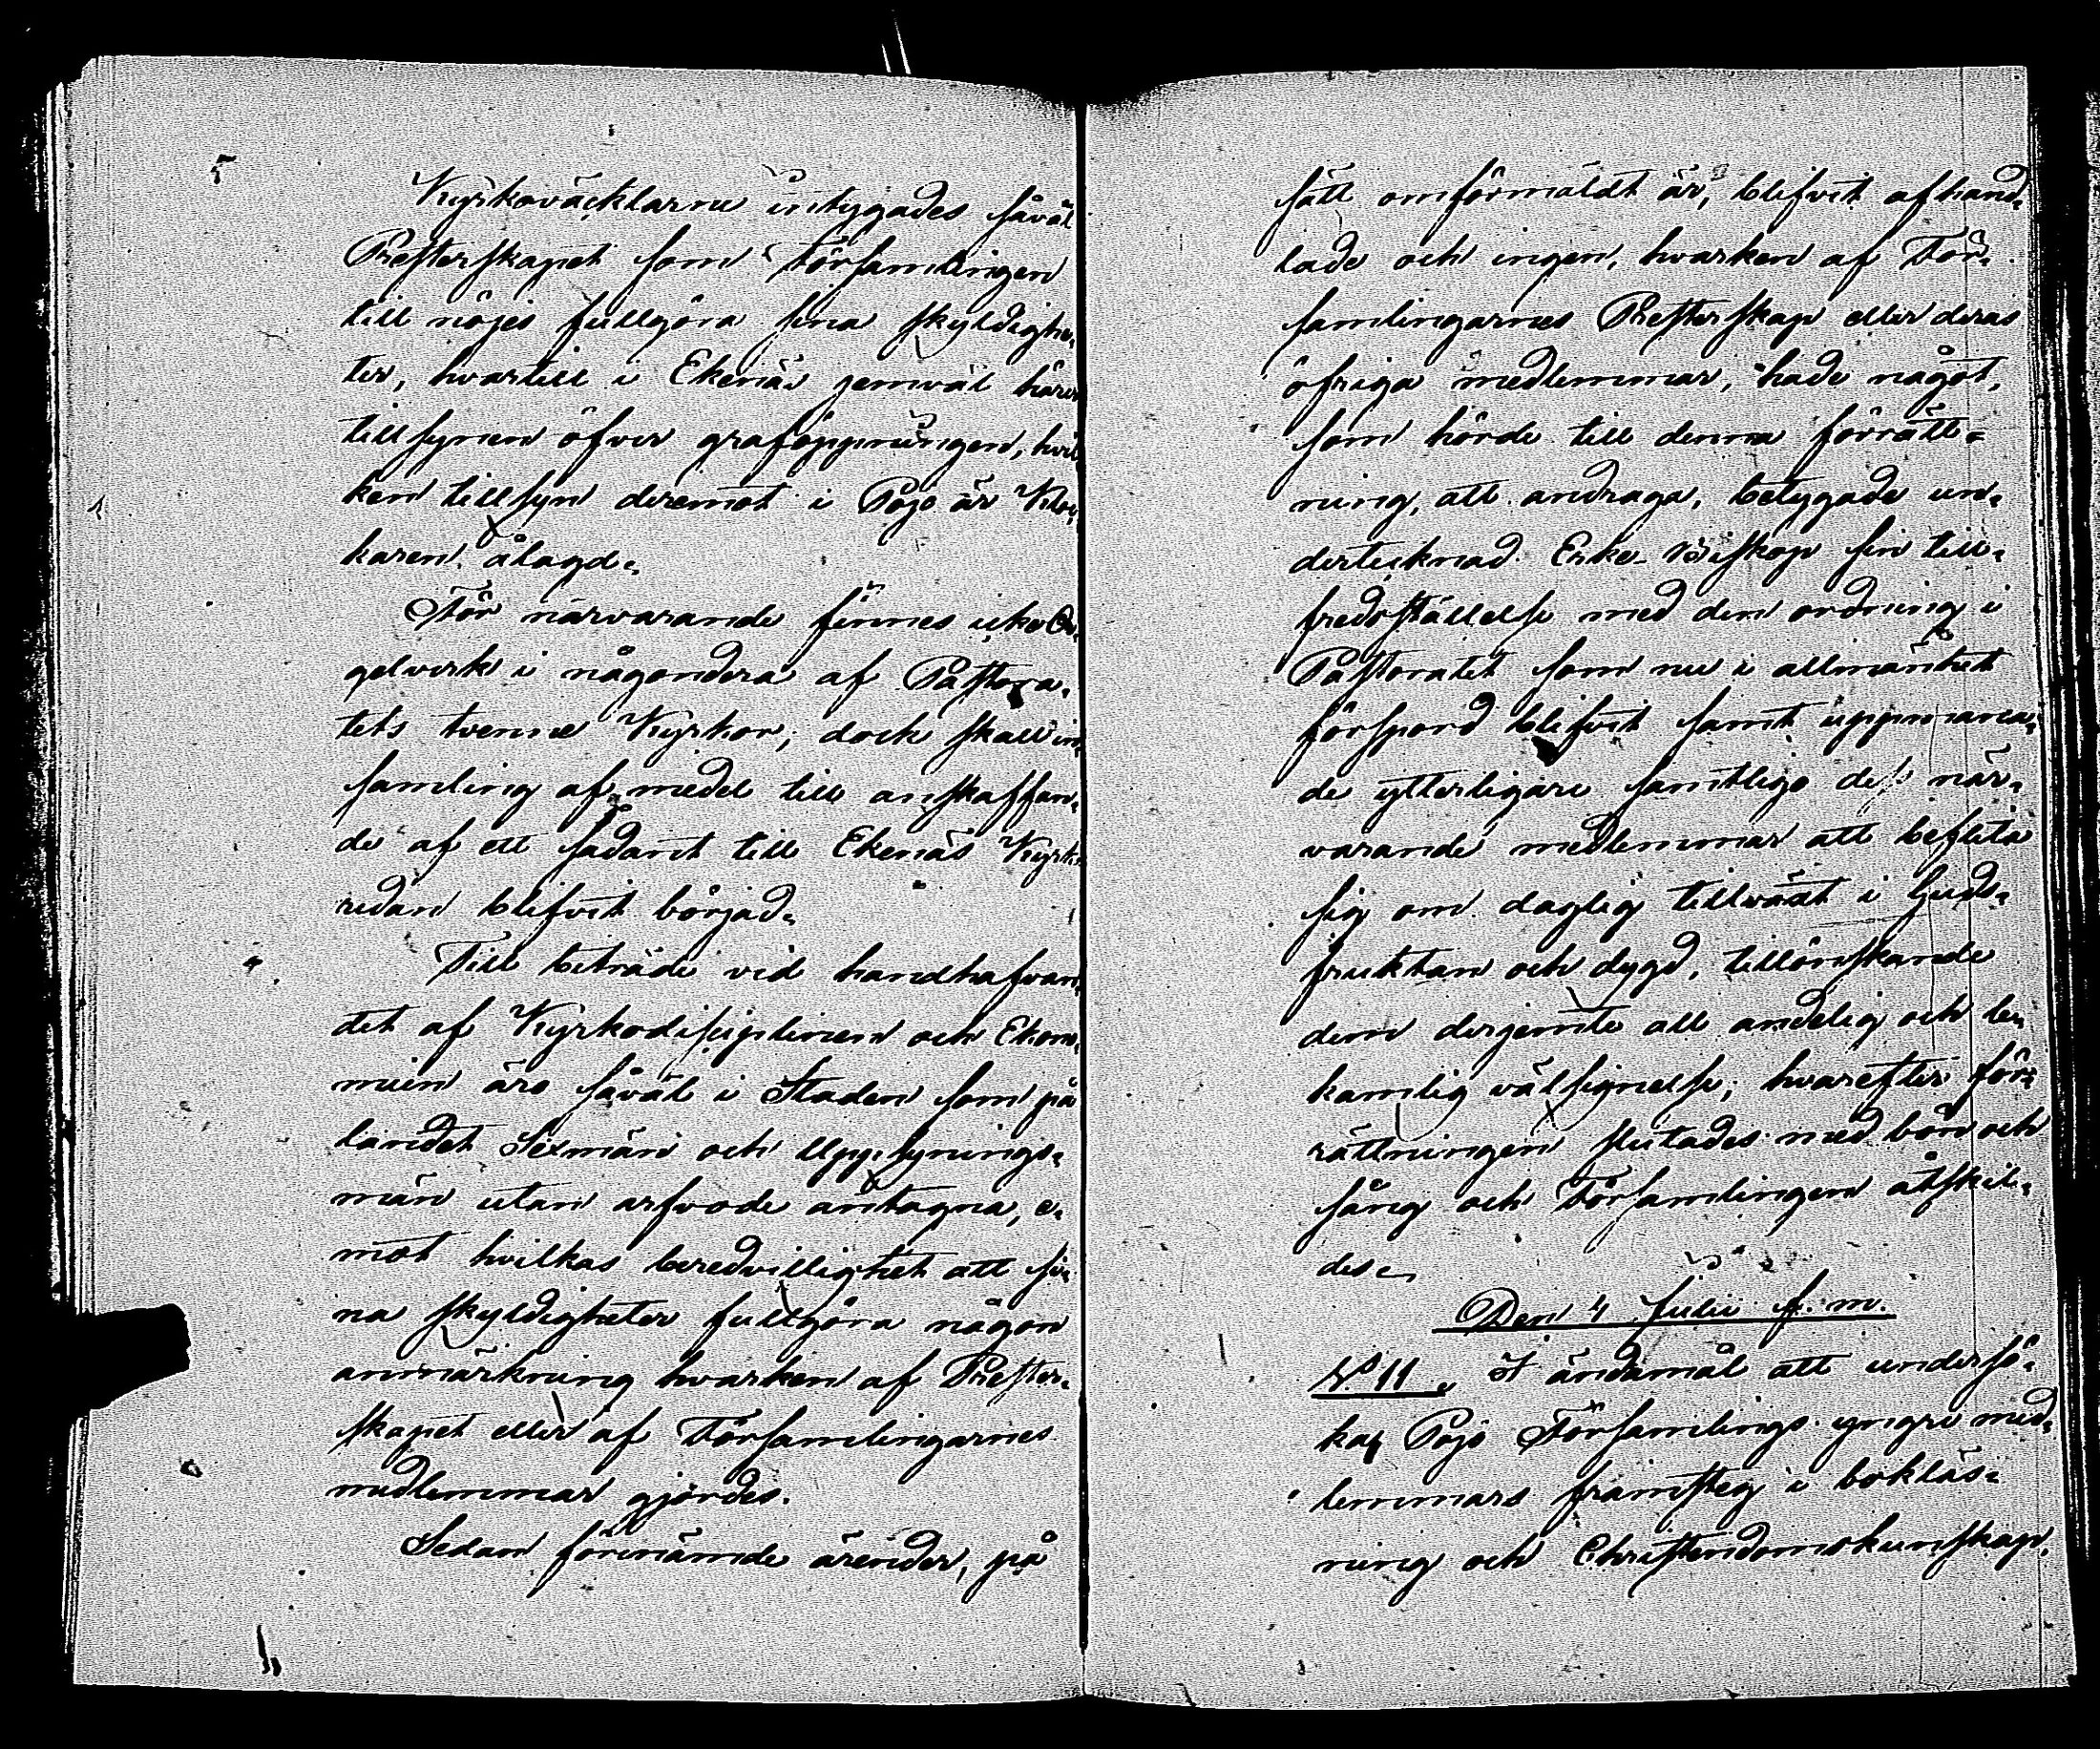 Kyrkoväcktarne intygades såväl
Presterskapet som Församlingen
till nöjes fullgöra sina skyldighe-
ter, hvartill i Ekenäs jemväl hörer
tillsynen öfver graföppningen, hvil
ken tillsyn deremot i Pojo är Kloc-
karen ålagd.
För närvarande finnes icke Or-
gelverk i någondera af Pastora-
tets tvenne Kyrkor; dock skall in-
samling af medel till anskaffan-
de af ett sådant till Ekenäs Kyrka
redan blifvit börjad.
Till beträde vid handhafvan-
det af Kyrkodisciplinen och Ekono-
mien äro såväl i Staden som på
landet Sexmän och Uppsynings-
män utan arfvode antagna, e-
mot hvilkas beredvillighet att si-
na skyldigheter fullgöra någon
anmärkning hvarken af Prester-
skapet eller af Församlingarnes
medlemmar gjordes.
Sedan förenämde ärender, på
sätt omförmäldt är, blifvit afhand-
lade och ingen, hvarken af För-
samlingarnes Presterskap eller deras
öfriga medlemmar, hade något,
som hörde till denna förrätt-
ning, att andraga, betygade un-
dertecknad Erke-Biskop sin till-
fredsställelse med den ordning i
Pastoratet som nu i allmänhet
försport blifvit samt uppmana-
de ytterligare samtlige dess när-
varande medlemmar att beflita
sig om daglig tillväxt i Guds-
fruktan och dygd, tillönskande
dem derjemte all andelig och le-
kamlig välsignelse; hvarefter för-
rättningen slutades med bön och
sång och Församlingen åtskil-
des.
Den 4 Julii f.m.
N:o 11. I ändamål att undersö-
ka Pojo Församlings yngre med-
lemmars framsteg i bokläs-
ning och Christendomskunskap,